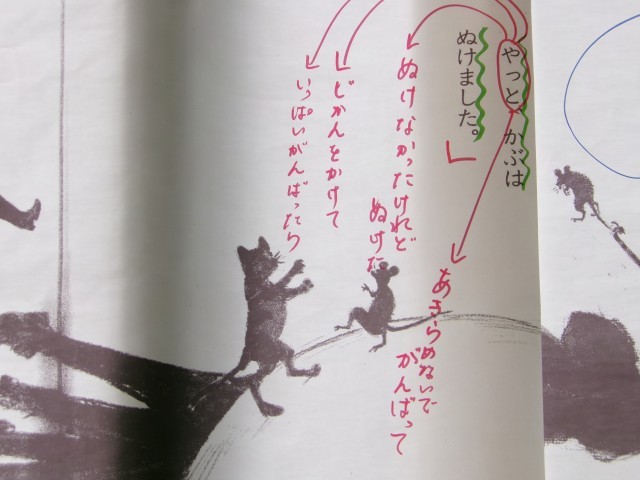 やっと、かぶは
ぬけました。
あきらめないで
がんばって
ぬけなかったけれど
ぬけた
じかんをかけて
いっぱいがんばったら